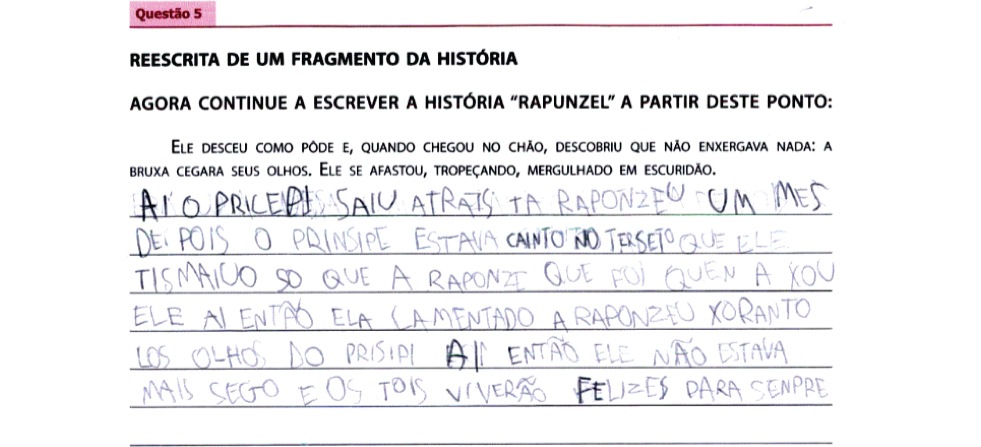 Questão 5
REESCRITA DE UM FRAGMENTO DA HISTÓRIA
AGORA CONTINUE A ESCREVER A HISTÓRIA “RAPUNZEL” A PARTIR DESTE PONTO:
ELE DESCEU COMO PÔDE E, QUANDO CHEGOU NO CHÃO, DESCOBRIU QUE NÃO ENXERGAVA NADA: A
BRUXA CEGARA SEUS OLHOS. ELE SE AFASTOU, TROPEÇANDO, MERGULHADO EM ESCURIDÃO.
AI O SAIU ATRAIS TA RAPONZEU UM MES
DEPOIS O PRINSIPE ESTAVA CAINTO NO TERSETO QUE ELE
TISMAIUO SO QUE A RAPONZE QUE FOI QUEN A XOU
ELE AI ENTÃO ELA LAMENTADO A RAPONZEU XORANTO
LOS OLHOS DO PRISIPI AI ENTÃO ELE NÃO ESTAVA
MAIS SEGO E OS TOIS VIVERÃO FELIZES PARA SENPRE